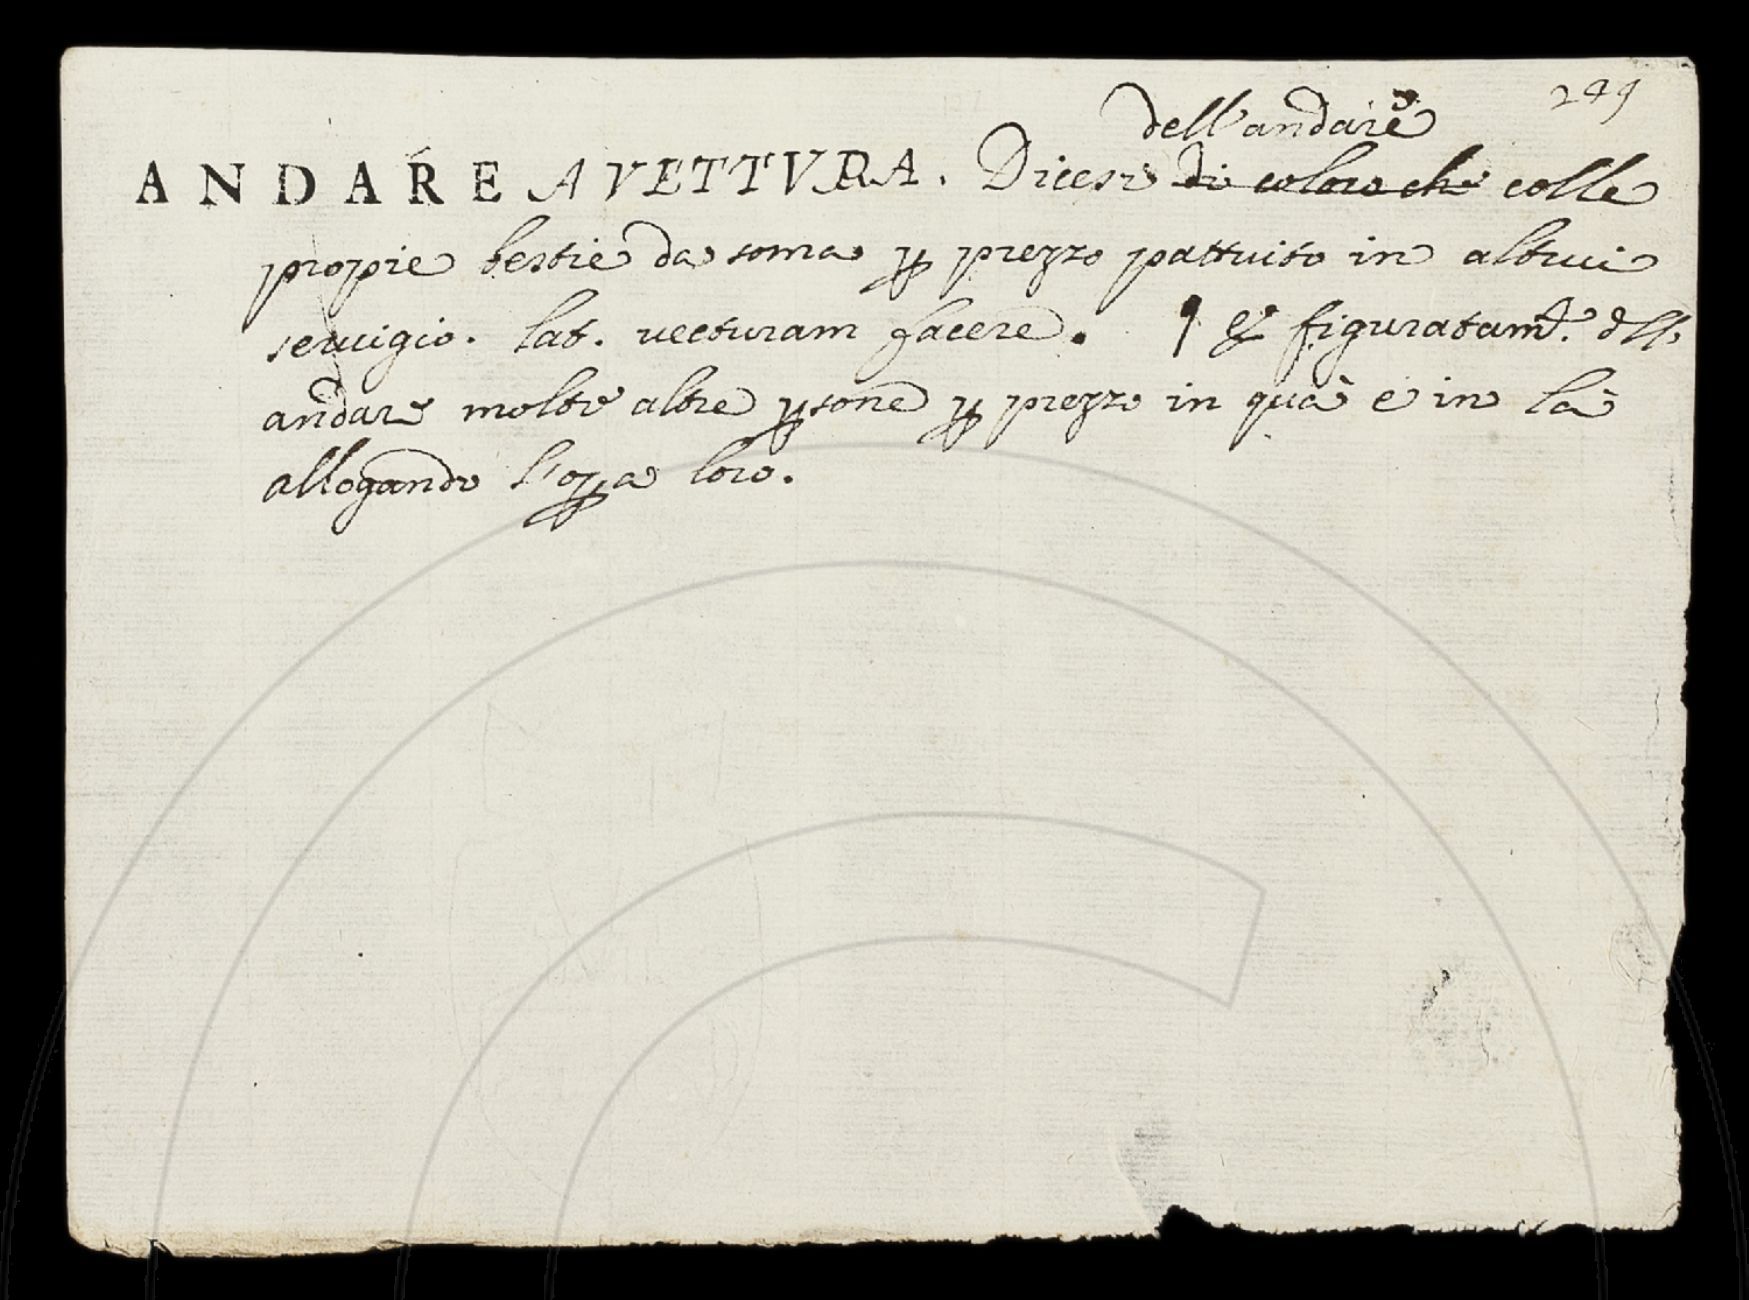 249
dell'andare
ANDARE A VETTVRA. Dicesi di coloro che colle
propie bestie da soma ꝑ prezzo pattuito in altrui
servigio. lat. vecturam facere. ¶ Et figuratamte. dell'
andare molte altre ꝑsone ꝑ prezzo in quà e in là
allogando l'oꝑa loro.